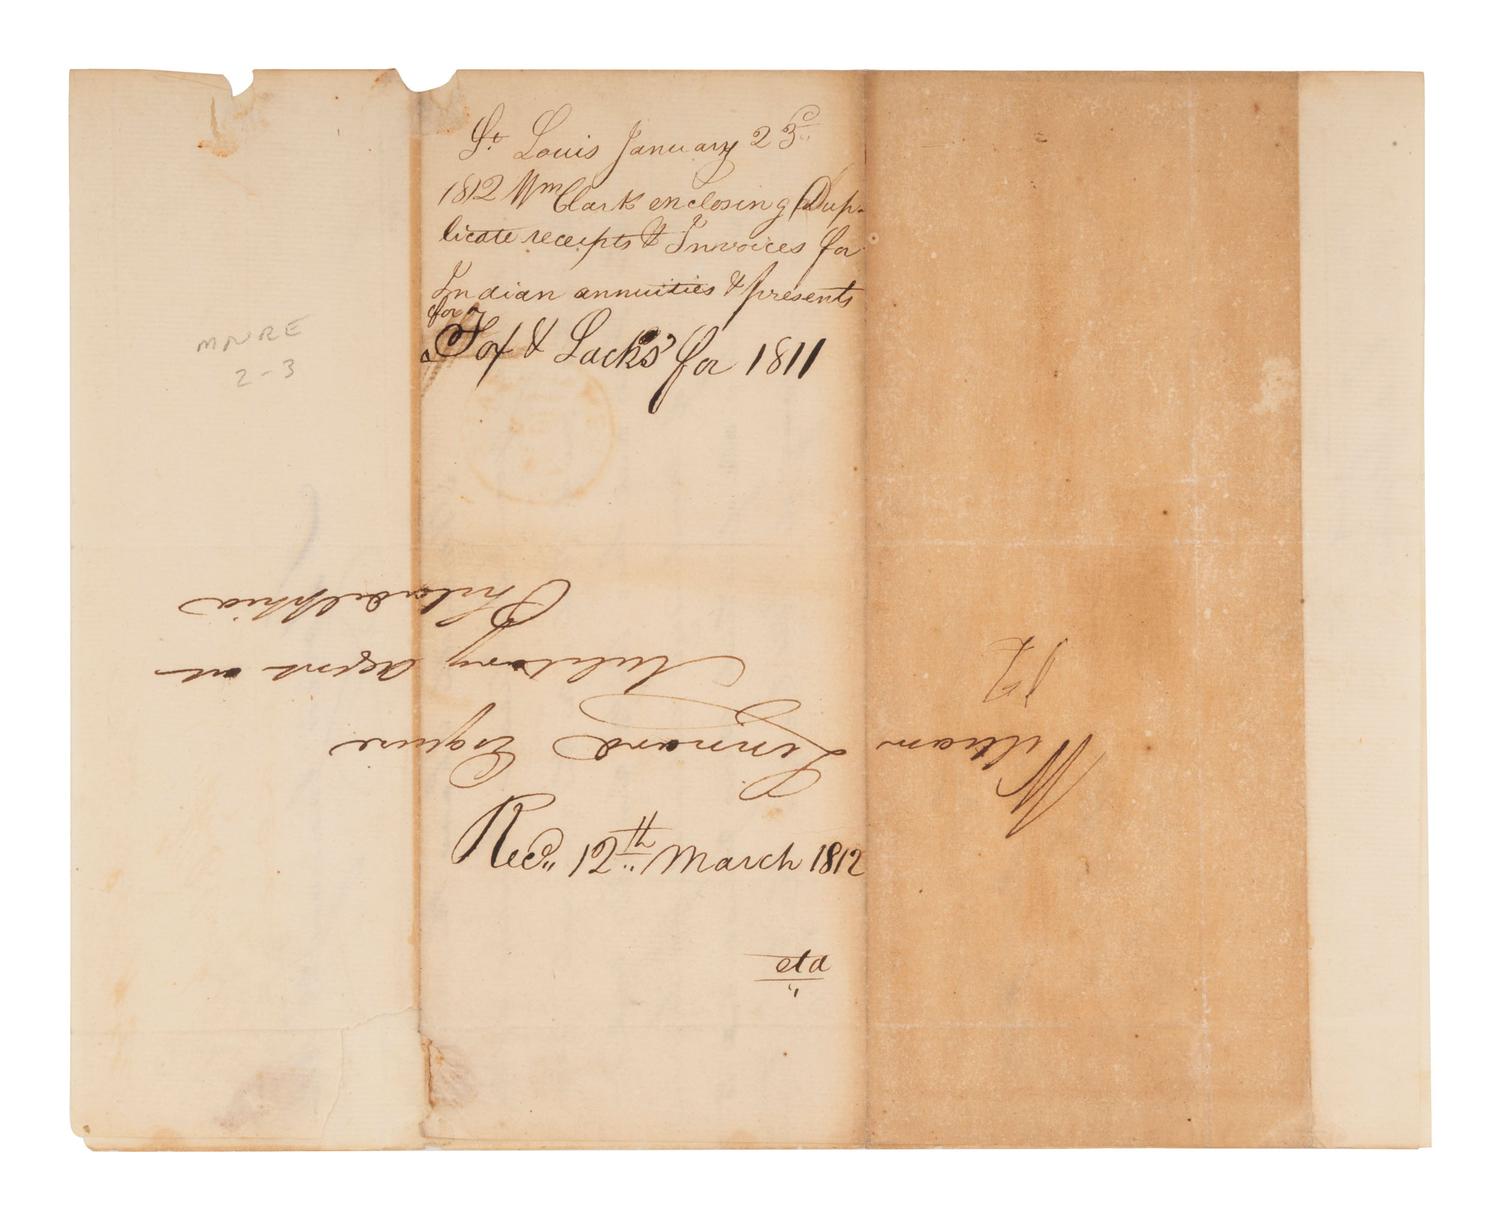 St. Louis January 23d
1812 Wm Clark enclosing Dup-
licate receipts & Invoices for
Indian annuities & presents
for
Fox & Sacks' for 1811
MNRE
2-3
William Linnard Esquire
Military agent at
Philadelphia
Recd. 12th March 1812
etd